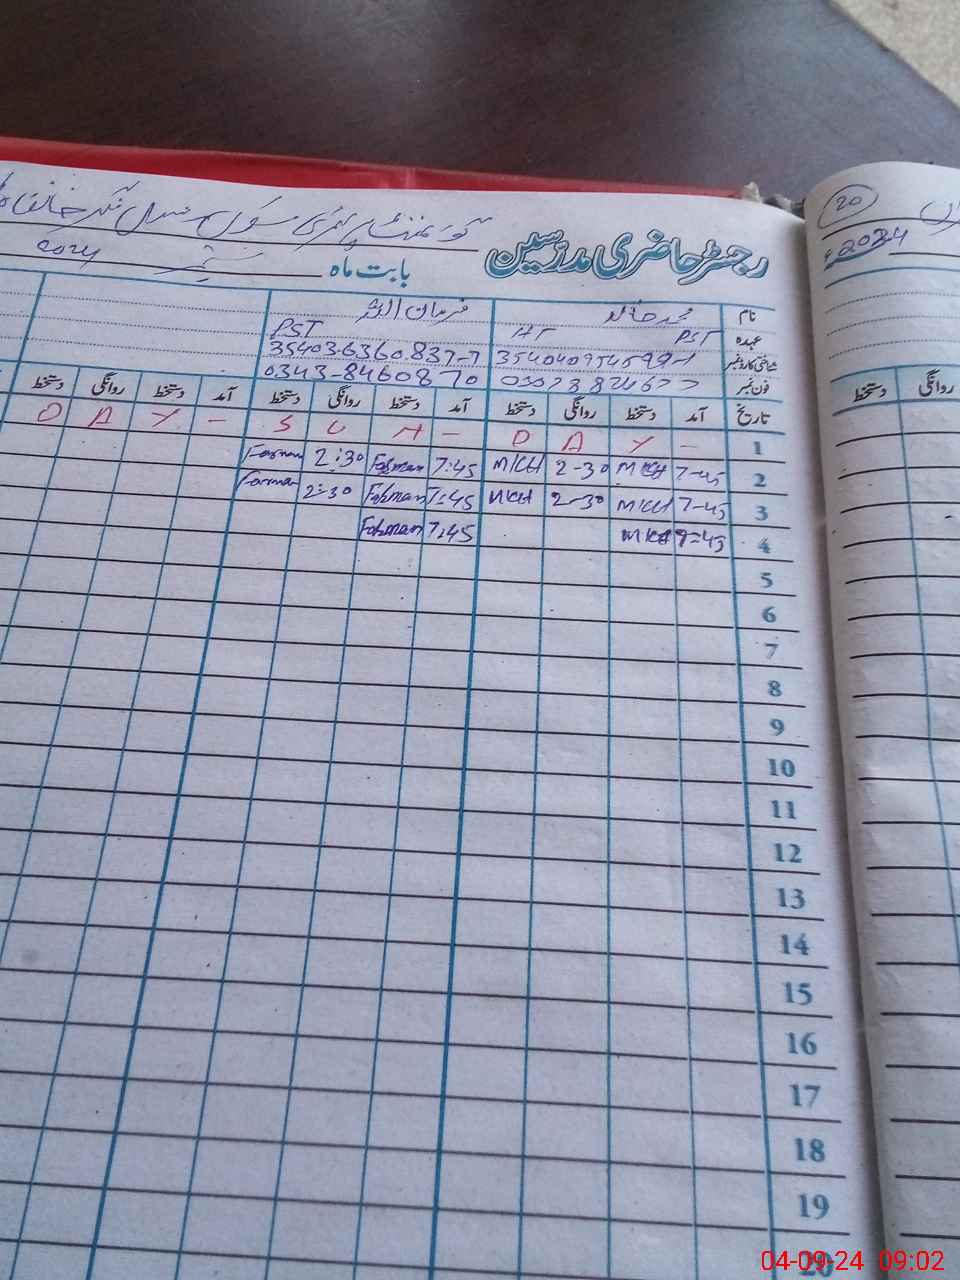 گورنمنٹ پرائمری سکول
رجسٹر حاضری مدرسین
بابت ماہ ستمبر 2024
20
2024
نام محمد خالد فرمان اللہ
عہدہ PST HT PST
شناختی کارڈ نمبر 35403-6360837-7
فون نمبر 0343-8460870
تاریخ آمد دستخط روانگی دستخط آمد دستخط روانگی دستخط آمد دستخط روانگی دستخط
دستخط روانگی
1 - Y A D - N U S - Y A D
2 7-45 MKH 2-30 MKH 7:45 Farman 2:30 Farman
3 7-45 MKH 2-30 MKH 7:45 Farman 2:30 Farman
4 7-45 MKH 7:45 Farman
5
6
7
8
9
10
11
12
13
14
15
16
17
18
19
20
04-09-24 09:02